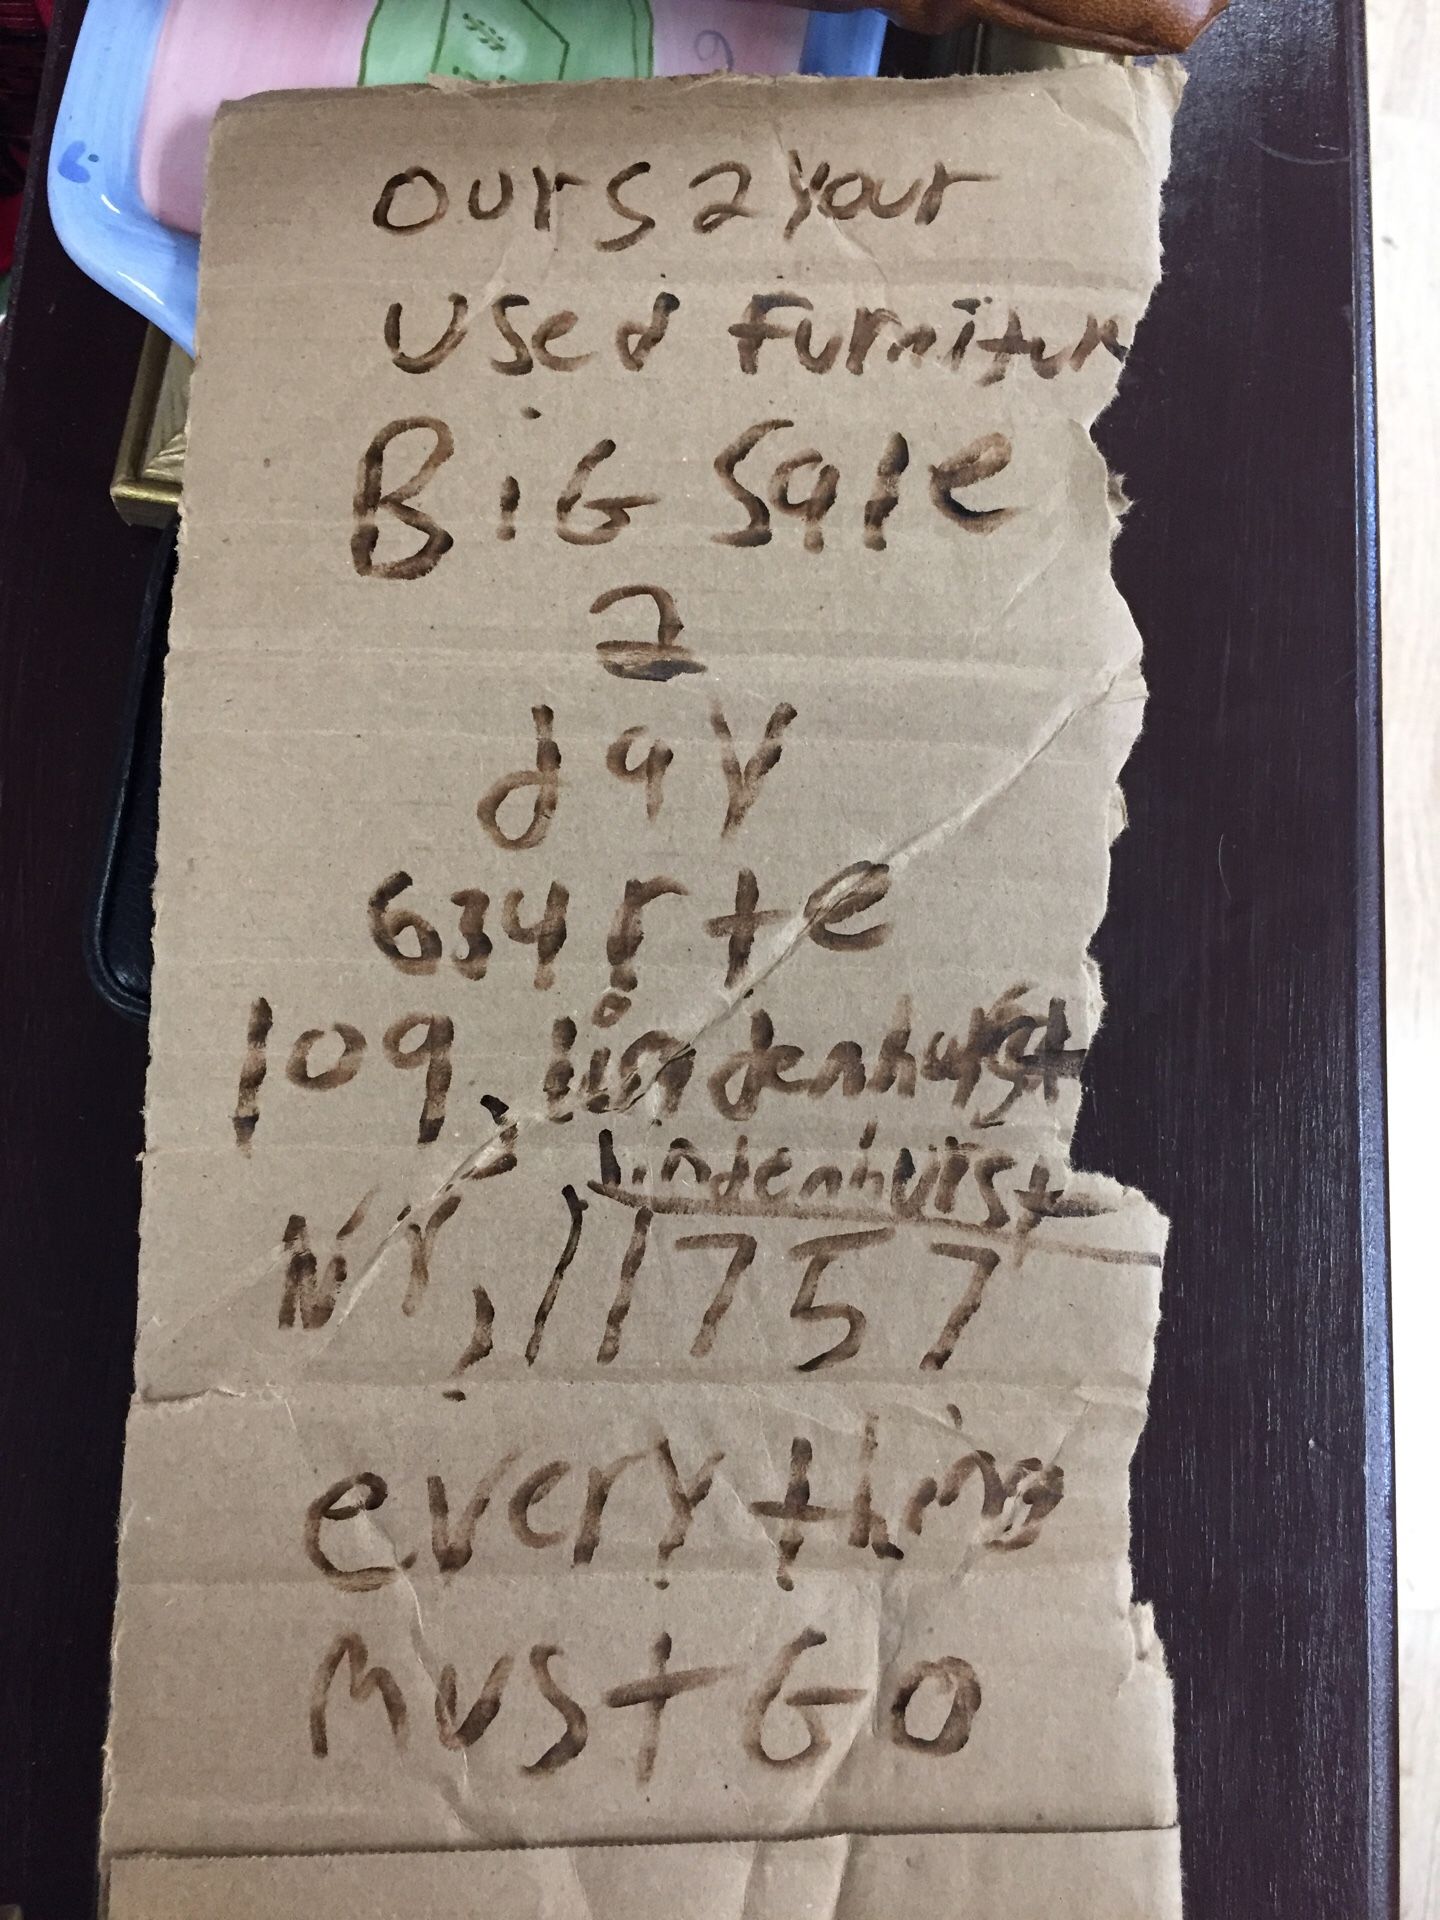 ours 2 your
used Furniture
BiG Sale
2
day
634 rte
109, lindenhurst
lindenhurst
NY, 11757
every thing
must GO